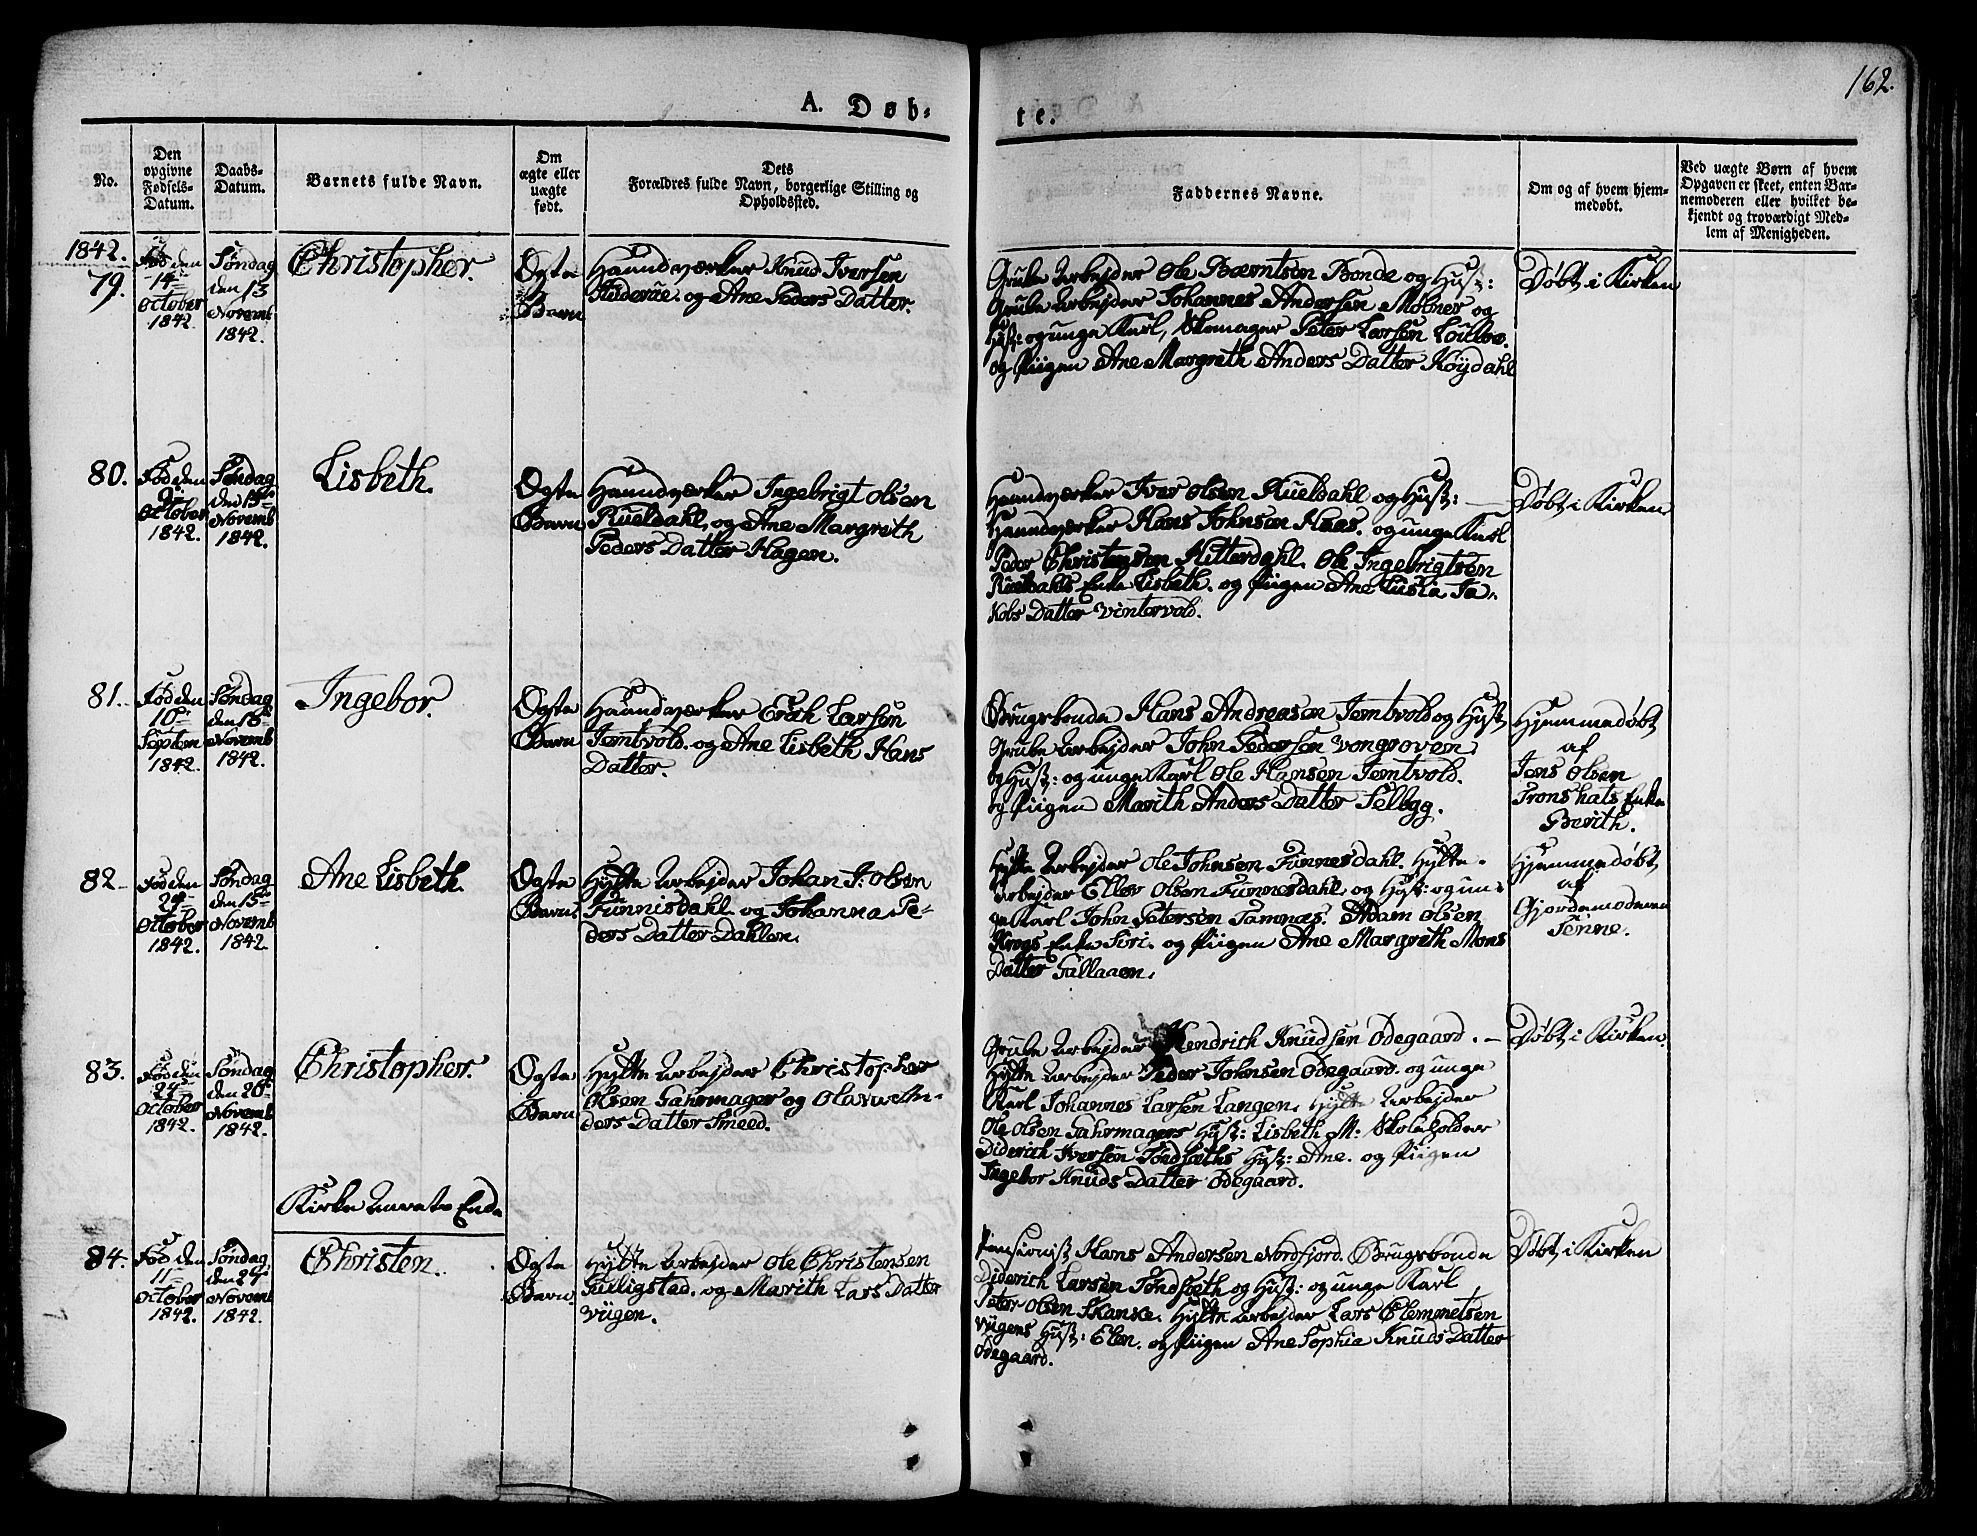 162.
A. Døb-
te.
No.
Den
opgivne
Fødsels-
Datum.
Daabs-
Datum.
Barnets fulde Navn.
Om
ægte eller
uægte
født.
Dets
Forældres fulde Navn, borgerlige Stilling og
Opholdssted.
Faddernes Navne.
Om og af hvem hjem-
medøbt.
Ved uægte Børn af hvem
Opgaven er skeet, enten Bar-
nemoderen eller hvilket be-
kjendt og troværdigt Med-
lem af Menigheden.
1842.
79.
Fød den
14de
October
1842.
Søndag
den 13
Novemb
1842.
Christopher.
Ægte
Barn
Haandværker Knud Iversen
og Ane Peders Datter.
Grube Arbejder Ole Berntsen Bonde og Hust:
Grube Arbejder Johannes Andersen Møbner og
Hust: og unge Karl, Skomager Peter Larsen
og Piigen Ane Margreth Anders Datter Røydahl
Døbt i Kirken
80.
Fød den
October
1842.
Søndag
den 13de
Novemb
1842.
Lisbeth.
Ægte
Barn
Haandværker Ingebrigt Olsen
Rueldahl, og Ane Margreth
Peders Datter Hagen.
Haandværker Iver Olsen Rueldahl og Hust:
Haandværker Hans Johnsen Haas. og unge Karl
Peder Christensen Hitterdahl. Ole Ingebrigtsen
Rueldahls Enke Lisbeth. og Piigen Ane Lusia Ja-
kobs Datter Vintervold.
Døbt i Kirken
81.
Fød den
10de
Septem
1842.
Søndag
den 13de
Novemb
1842.
Ingebor.
Ægte
Barn
Haandværker Erich Larsen
Jemtvold. og Ane Lisbeth Hans
Datter.
Brugsbonde Hans Andreasen Jemtvold og Hust
Grube Arbejder John Pedersen Vongroven
og Hust: og unge Karl Ole Hansen Jemtvold.
og Piigen Marith Anders Datter Selbyg.
Hjemmedøbt
af
Jens Olsen
Tronshats Enke
Berith.
82
Fød den
October
1842.
Søndag
den 13de
Novemb
1842.
Ane Lisbeth.
Ægte
Barn
Hytte Arbejder Johan J: Olsen
Funnisdahl. og Johanna Pe-
ders Datter Dahlen.
Hytte Arbejder Ole Johnsen Funnesdahl. Hytte-
arbejder Ellev Olsen Funnesdahl, og Hust: og un-
ge Karl John Petersen Tamnæs. Adam Olsen
Krogs Enke Siri. og Piigen Ane Margreth Mons
Datter Gallaaen.
Hjemmedøbt
af
Gjordemoderen
83.
Fød den
24de
October
1842.
Søndag
den 20de
Novemb
1842.
Christopher.
Ægte
Barn
Hytte Arbejder Christopher
Olsen Gahrmager og Olava An-
ders Datter Smeed.
Grube Arbejder Hendrich Knudsen Ødegaard. -
Hytte Arbejder Peder Johnsen Ødegaard. og unge
Karl Johannes Larsen Langen. Hytte Arbejder
Ole Olsen Gahrmagers Hust: Lisbeth M: Skoleholder
Diderich Iversen Tøndsæths Hust: Ane. og Piigen
Ingebor Knuds Datter Ødegaard.
Døbt i Kirken.
Kirke Aarets Ende
84.
Fød den
11te
October
1842.
Søndag
den 27de
Novemb
1842.
Christen.
Ægte
Barn.
Hytte Arbejder Ole Christensen
Fulligstad. og Marith Lars Datter
Vügen.
Pensionist Hans Andersen Nordfjord. Brugsbonde
Diderich Larsen Tøndsæth og Hust: og unge Karl
Peter Olsen Skanke. Hytte Arbejder Lars Clemmetsen
Vügens Hust: Elen. og Piigen Ane Sophia Knuds Datter
Ødegaard.
Døbt i Kirken